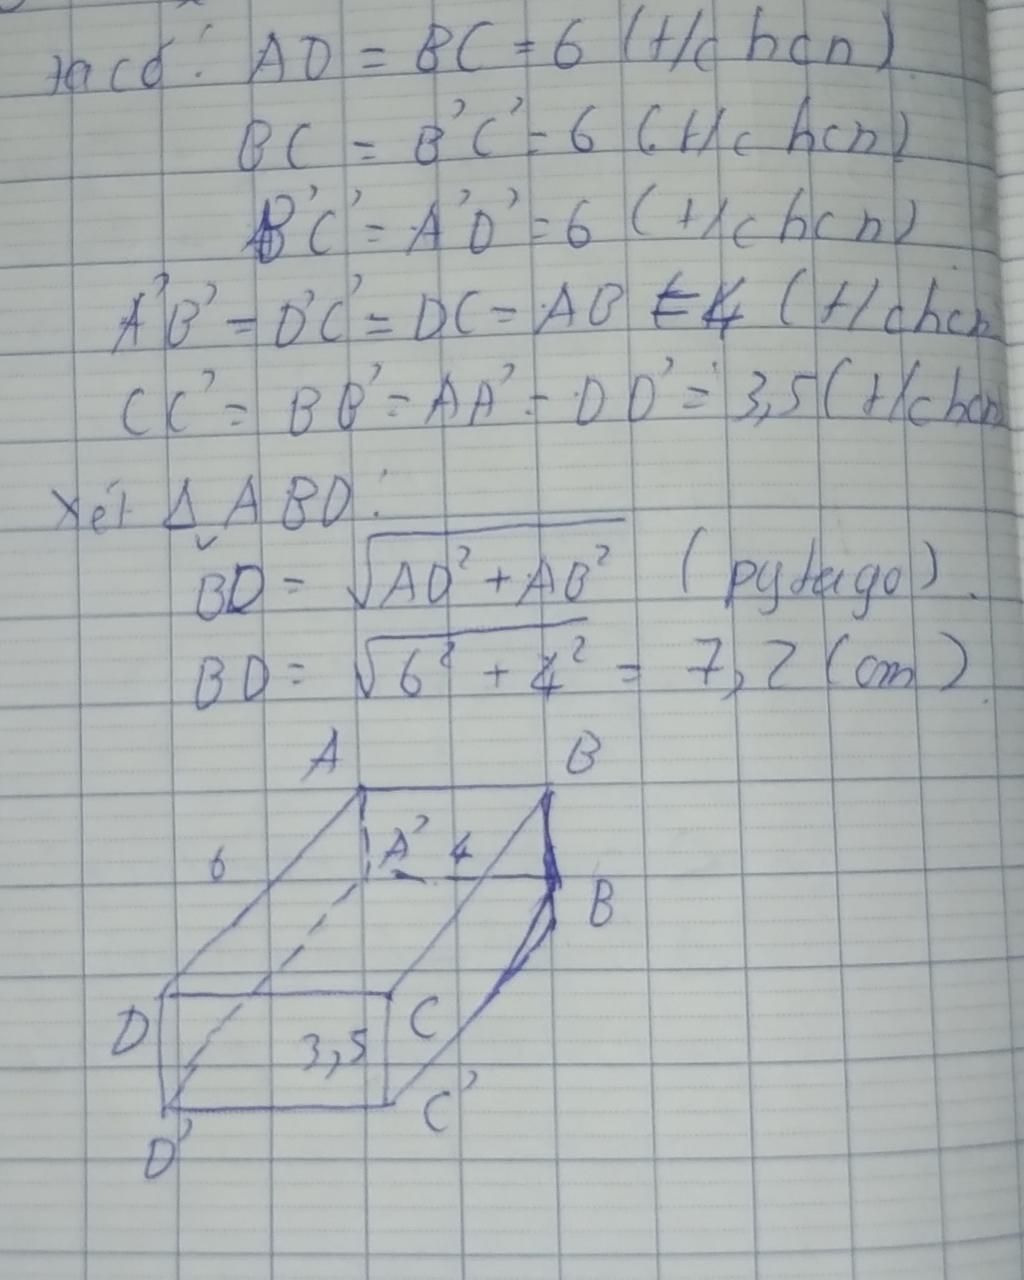 Ta có: AD = BC = 6 (t/c hcn)
BC = B'C' = 6 (t/c hcn)
B'C' = A'D' = 6 (t/c hcn)
A'B' = D'C' = DC = AB = 4 (t/c hcn
CC' = BB' = AA' = DD' = 3,5 (t/c hcn
Xét Δ ABD:
BD = √AD² + AB² (pytago).
BD = √6² + 4² = 7,2 (cm)
A B
6 A' 4
B
D 3,5 C
D' C'